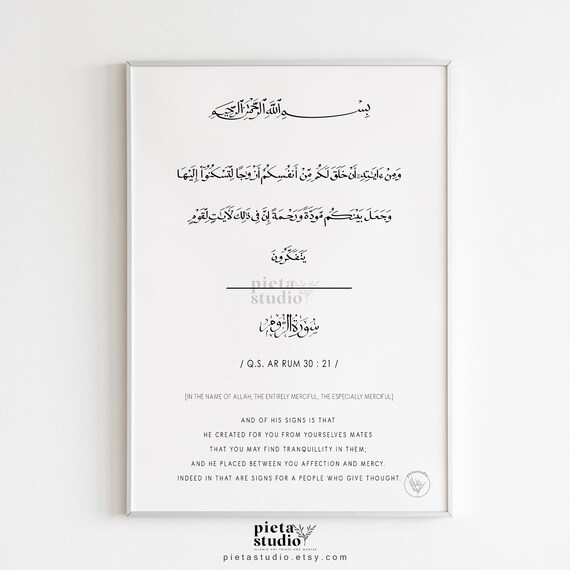 بِسْمِ اللَّهِ الرَّحْمَٰنِ الرَّحِيمِ
وَمِنْ ءَايَٰتِهِۦٓ أَنْ خَلَقَ لَكُم مِّنْ أَنفُسِكُمْ أَزْوَٰجًا لِّتَسْكُنُوٓا۟ إِلَيْهَا
وَجَعَلَ بَيْنَكُم مَّوَدَّةً وَرَحْمَةً إِنَّ فِى ذَٰلِكَ لَءَايَٰتٍ لِّقَوْمٍ
يَتَفَكَّرُونَ
pieta
studio
سُورَةُ الرُّومِ
/ Q.S. AR RUM 30 : 21 /
[IN THE NAME OF ALLAH, THE ENTIRELY MERCIFUL, THE ESPECIALLY MERCIFUL]
AND OF HIS SIGNS IS THAT
HE CREATED FOR YOU FROM YOURSELVES MATES
THAT YOU MAY FIND TRANQUILLITY IN THEM;
AND HE PLACED BETWEEN YOU AFFECTION AND MERCY.
INDEED IN THAT ARE SIGNS FOR A PEOPLE WHO GIVE THOUGHT.
pieta
studio
ISLAMIC ART PRINTS AND QUOTES
pietastudio.etsy.com